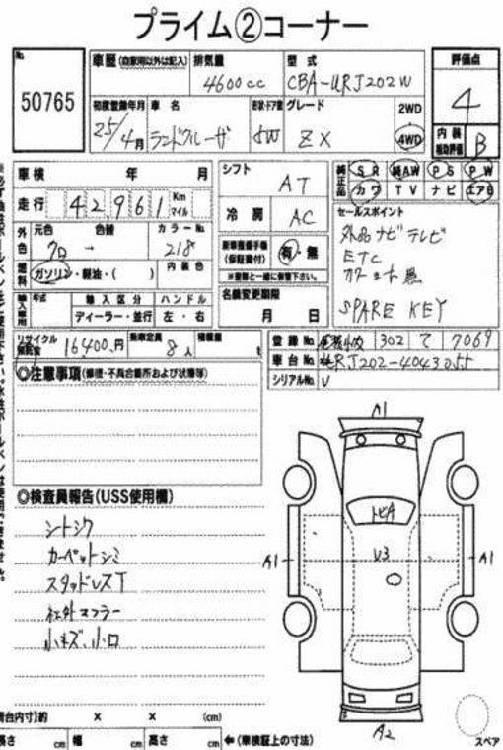 プライム②コーナー
No. 50765
車歴 (自家用以外は記入) 排気量 4600cc 型式 CBA-URJ202W
評価点 4
初検登録年月 25/4月 車名 ランドクルーザ 形状・ドア数 5W グレード ZX 2WD 4WD
内装補助評価 B
車検 年 月
シフト AT
純正品 SR 純AW PS PW
カワ TV ナビ エアB
走行 42961 Km マイル
冷房 AC
セールスポイント
外品ナビテレビ
ETC
SPARE KEY
外色 元色 クロ → 色替 カラーNo. 218
燃料 ガソリン・軽油・( ) 内装色
有・無
※整備と一緒に御覧下さい。
輸入車用 年式 輸入区分 ハンドル
ディーラー・並行 左・右
名義変更期限
月 日
リサイクル預託金 16,400円 乗車定員 8人 積載量 t
登録No. 302 て 7069
車台No. URJ202-4043055
シリアルNo.
◎注意事項(修復・不具合箇所および状導等)
◎検査員報告(USS使用欄)
シートシワ
カーペットシミ
スタッドレスT
社外マフラー
小キズ、小凹
A1
トビA
A1
U3
A1
A2
スペア
(荷台内寸)約 × × (cm)
長さ cm 幅 cm 高さ cm ←(車検証上の寸法)